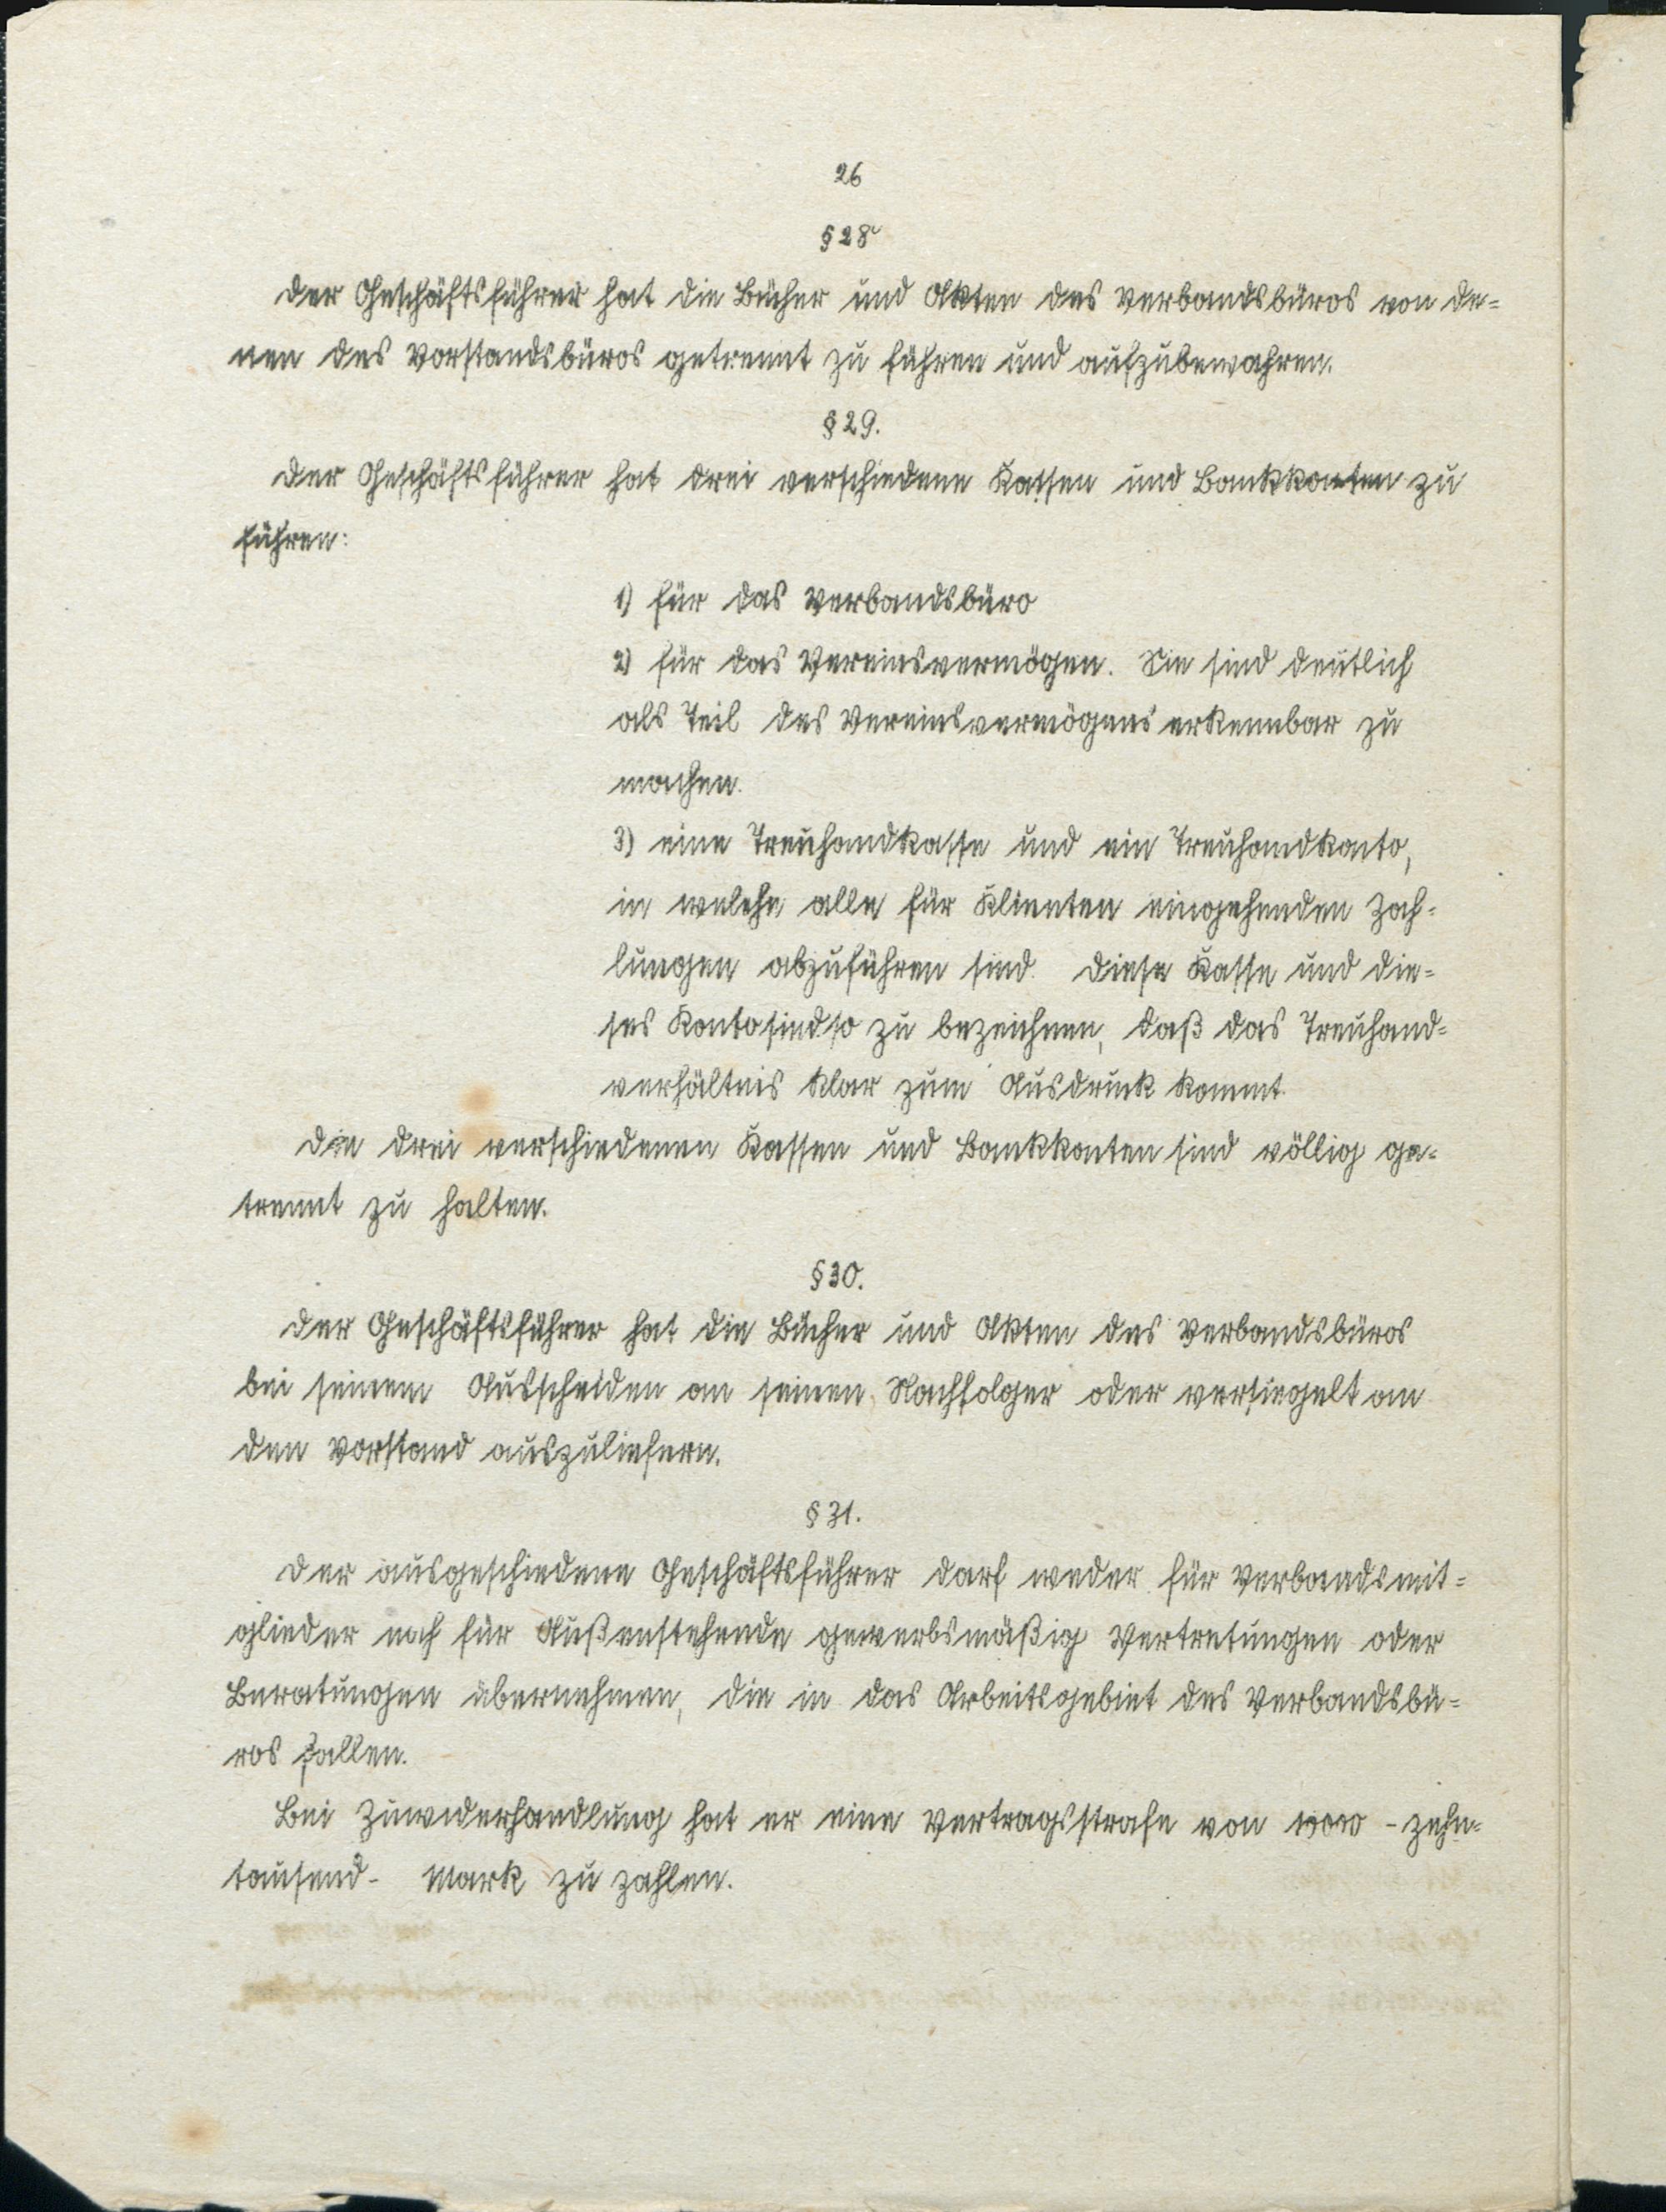 26
§ 28
Der Geschäftsführer hat die Bücher und Akten des Verbandsbüros von de=
nen des Vorstandsbüros getrennt zu führen und aufzubewahren.
§ 29.
Der Geschäftsführer hat drei verschiedene Kassen und Bankkonten zu
führen:
1) für das Verbandsbüro
2) für das Vereinsvermögen. Sie sind deutlich
als Teil des Vereinsvermögens erkennbar zu
machen.
3) eine Treuhandkasse und ein Treuhandkonto,
in welche alle für Klienten eingehenden Zah=
lungen abzuführen sind. Diese Kasse und die=
ses Konto sind so zu bezeichnen, daß das Treuhand=
verhältnis klar zum Ausdruck kommt.
Die drei verschiedenen Kassen und Bankkonten sind völlig ge=
trennt zu halten.
§ 30.
Der Geschäftsführer hat die Bücher und Akten des Verbandsbüros
bei seinem Ausscheiden an seinen Nachfolger oder versiegelt an
den Vorstand auszuliefern.
§ 31.
Der ausgeschiedene Geschäftsführer darf weder für Verbandsmit=
glieder noch für Außenstehende gewerbsmäßig Vertretungen oder
Beratungen übernehmen, die in das Arbeitsgebiet des Verbandsbü=
ros fallen.
Bei Zuwiderhandlung hat er eine Vertragsstrafe von 10000 - zehn=
tausend - Mark zu zahlen.